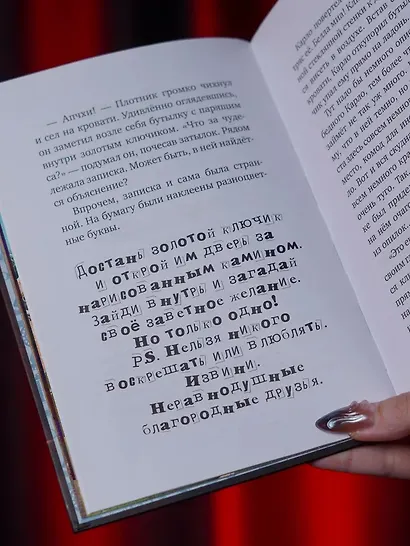 — Апчхи! — Плотник громко чихнул
и сел на кровати. Удивлённо оглядевшись,
он заметил возле себя бутылку с парящим
внутри золотым ключиком. «Что за чуде-
са?» — подумал он, почесав затылок. Рядом
лежала записка. Может быть, в ней найдёт-
ся объяснение?
Впрочем, записка и сама была стран-
ной. На бумагу были наклеены разноцвет-
ные буквы.
Достань золотой ключик
и открой им дверь за
нарисованным камином.
Зайди внутрь и загадай
своё заветное желание.
Но только одно!
PS. Нельзя никого
воскрешать или влюблять.
Извини.
Неравнодушные
благородные друзья.
Карло повертел
стеклянной стенки
ся висеть в воздухе. Встав
Карло откупорил буты
чик упал ему прямо на ладонь
Тут надо бы немного
бедного Карло, тем более
займёт не так уж много
му, что в ней темно,
ста здесь совсем немног
место, комод для
ле. Вот и вся
всем немного
очень туго. Так,
ке был
на нём очаг
из опилок